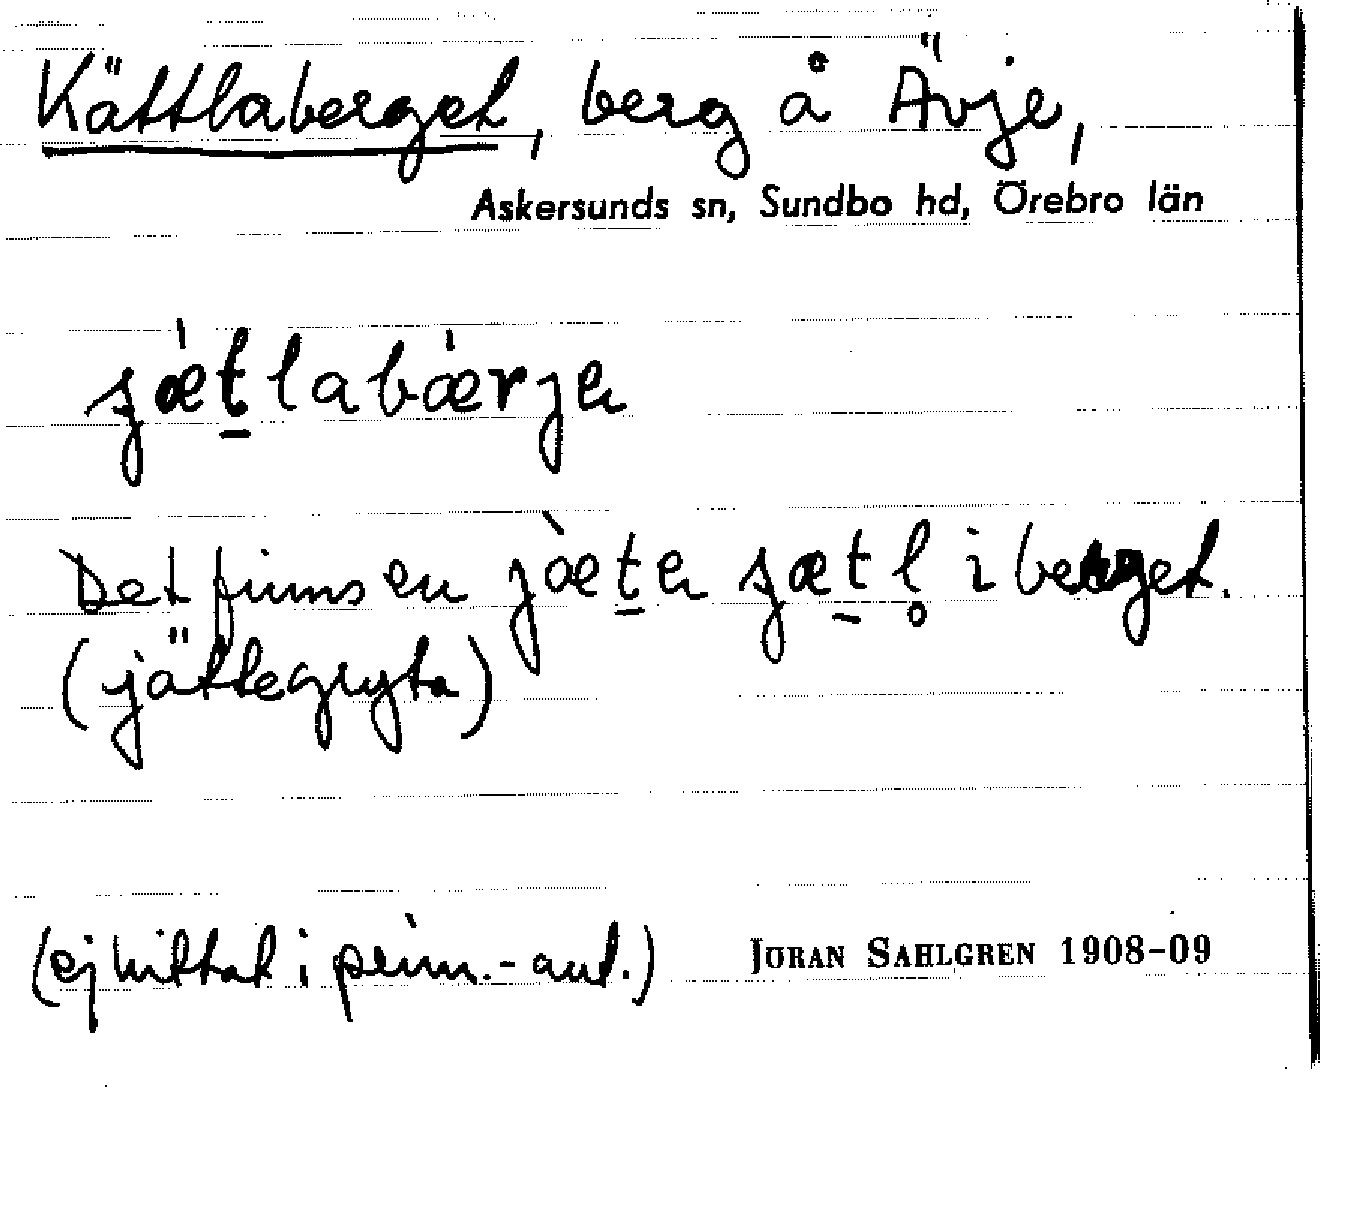 Kättlaberget, berg å Ävje,
Askersunds sn, Sundbo hd, Örebro län
ʂæ̀t̠labæ̀rje
Det finns en jæ̀t̠e ʂæt̠l̥ i berget.
(jättegryta)
(ej hittat i prim.-ant.) JÖRAN SAHLGREN 1908-09